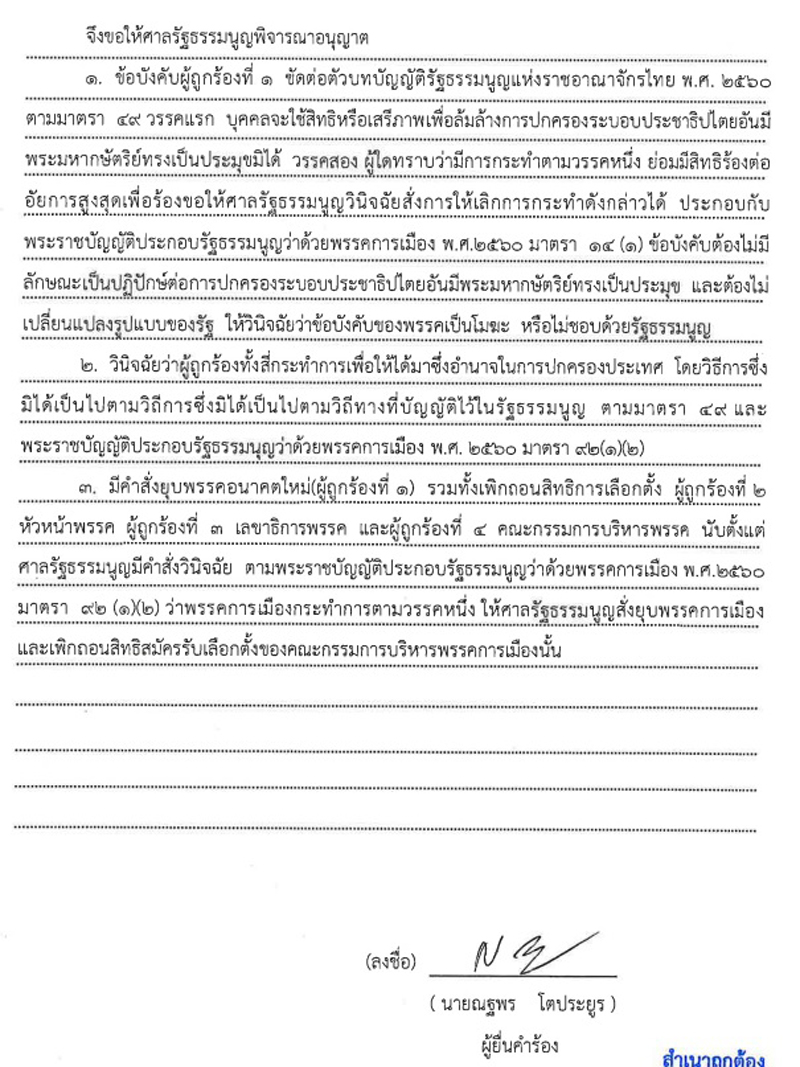 จึงขอให้ศาลรัฐธรรมนูญพิจารณาอนุญาต
๑. ข้อบังคับผู้ถูกร้องที่ ๑ ขัดต่อตัวบทบัญญัติรัฐธรรมนูญแห่งราชอาณาจักรไทย พ.ศ. ๒๕๖๐
ตามมาตรา ๔๙ วรรคแรก บุคคลจะใช้สิทธิหรือเสรีภาพเพื่อล้มล้างการปกครองระบอบประชาธิปไตยอันมี
พระมหากษัตริย์ทรงเป็นประมุขมิได้ วรรคสอง ผู้ใดทราบว่ามีการกระทำตามวรรคหนึ่ง ย่อมมีสิทธิร้องต่อ
อัยการสูงสุดเพื่อร้องขอให้ศาลรัฐธรรมนูญวินิจฉัยสั่งการให้เลิกการกระทำดังกล่าวได้ ประกอบกับ
พระราชบัญญัติประกอบรัฐธรรมนูญว่าด้วยพรรคการเมือง พ.ศ.๒๕๖๐ มาตรา ๑๔ (๑) ข้อบังคับต้องไม่มี
ลักษณะเป็นปฏิปักษ์ต่อการปกครองระบอบประชาธิปไตยอันมีพระมหากษัตริย์ทรงเป็นประมุข และต้องไม่
เปลี่ยนแปลงรูปแบบของรัฐ ให้วินิจฉัยว่าข้อบังคับของพรรคเป็นโมฆะ หรือไม่ชอบด้วยรัฐธรรมนูญ
๒. วินิจฉัยว่าผู้ถูกร้องทั้งสี่กระทำการเพื่อให้ได้มาซึ่งอำนาจในการปกครองประเทศ โดยวิธีการซึ่ง
มิได้เป็นไปตามวิถีการซึ่งมิได้เป็นไปตามวิถีทางที่บัญญัติไว้ในรัฐธรรมนูญ ตามมาตรา ๔๙ และ
พระราชบัญญัติประกอบรัฐธรรมนุญว่าด้วยพรรคการเมือง พ.ศ. ๒๕๖๐ มาตรา ๙๒(๑)(๒)
๓. มีคำสั่งยุบพรรคอนาคตใหม่(ผู้ถูกร้องที่ ๑) รวมทั้งเพิกถอนสิทธิการเลือกตั้ง ผู้ถูกร้องที่ ๒
หัวหน้าพรรค ผู้ถูกร้องที่ ๓ เลขาธิการพรรค และผู้ถูกร้องที่ ๔ คณะกรรมการบริหารพรรค นับตั้งแต่
ศาลรัฐธรรมนูญมีคำสั่งวินิจฉัย ตามพระราชบัญญัติประกอบรัฐธรรมนูญว่าด้วยพรรคการเมือง พ.ศ.๒๕๖๐
มาตรา ๙๒ (๑)(๒) ว่าพรรคการเมืองกระทำการตามวรรคหนึ่ง ให้ศาลรัฐธรรมนูญสั่งยุบพรรคการเมือง
และเพิกถอนสิทธิสมัครรับเลือกตั้งของคณะกรรมการบริหารพรรคการเมืองนั้น
(ลงชื่อ)
( นายณฐพร โตประยูร )
ผู้ยื่นคำร้อง
สำเนาถูกต้อง